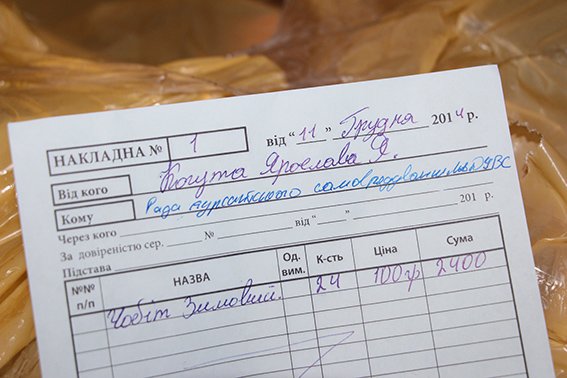 НАКЛАДНА № 1 від "11" Грудня 2014 р.
Від кого Когута Ярослава Я.
Кому Рада курсантського самоврядування ЛьвДУВС
Через кого
За довіреністю сер. № від " " 201 р.
Підстава
№№ п/п НАЗВА Од. вим. К-сть Ціна Сума
Чобіт Зимовий. 24 100гр 2400